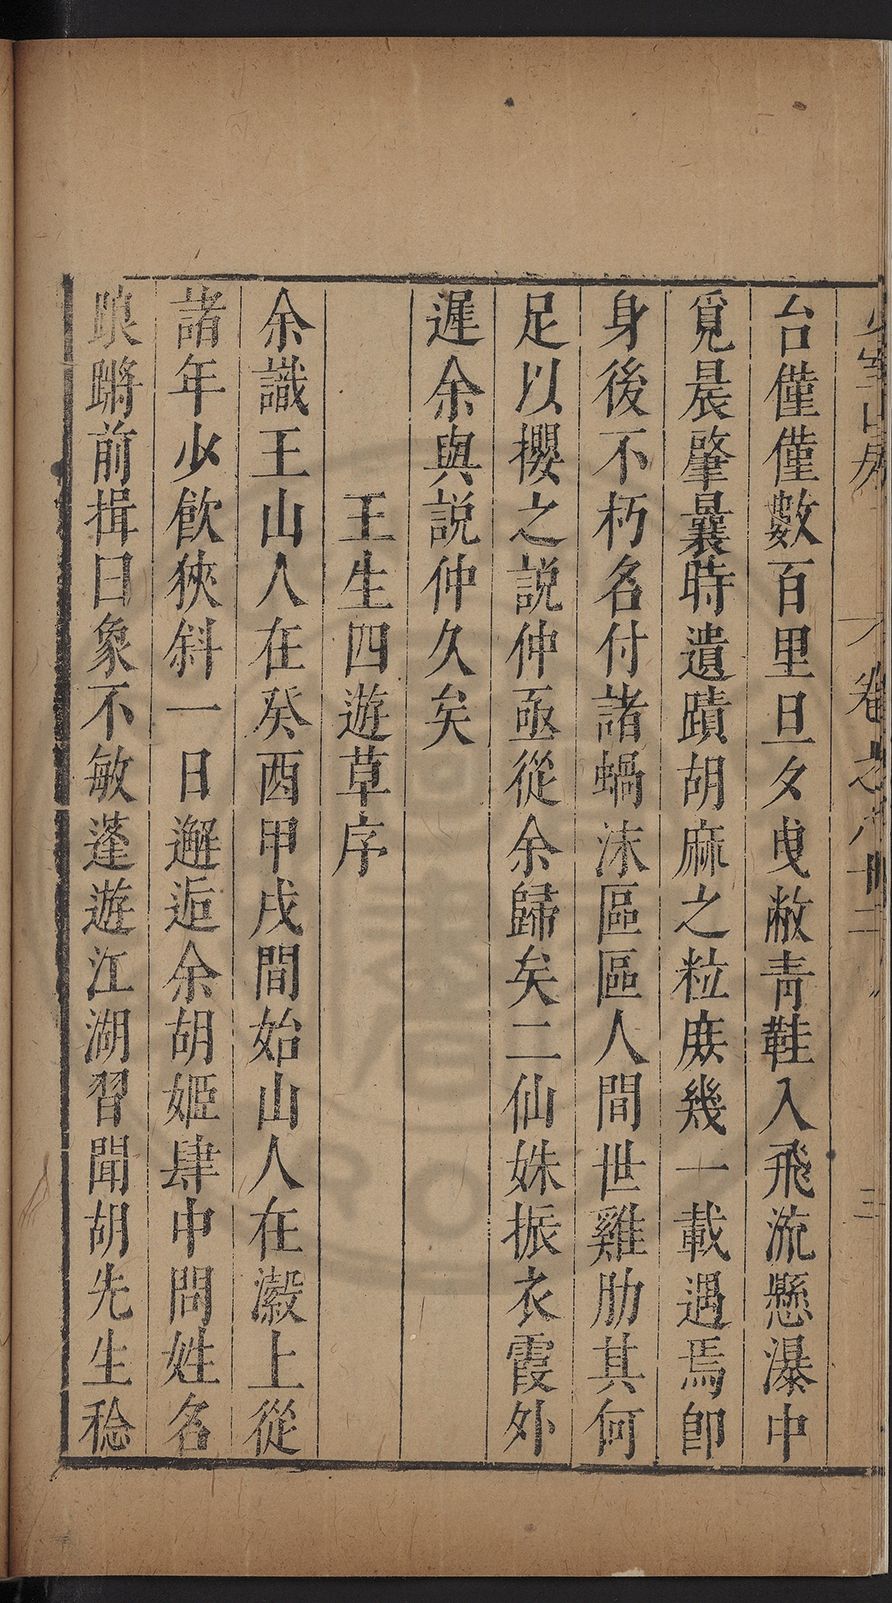 少室山房
卷之八十二
三
台僅僅數百里旦夕曳敝青鞋入飛流懸瀑中
覓晨肇曩時遺蹟胡麻之粒庻幾一載遇焉卽
身後不朽名付諸蝸沫區區人間世雞肋其何
足以攖之說仲亟從余歸矣二仙姝振衣霞外
遲余與說仲久矣
王生四遊草序
余識王山人在癸酉甲戌間始山人在瀫上從
諸年少飮狹斜一日邂逅余胡姬肆中問姓名
踉蹡前揖曰象不敏蓬遊江湖習聞胡先生稔